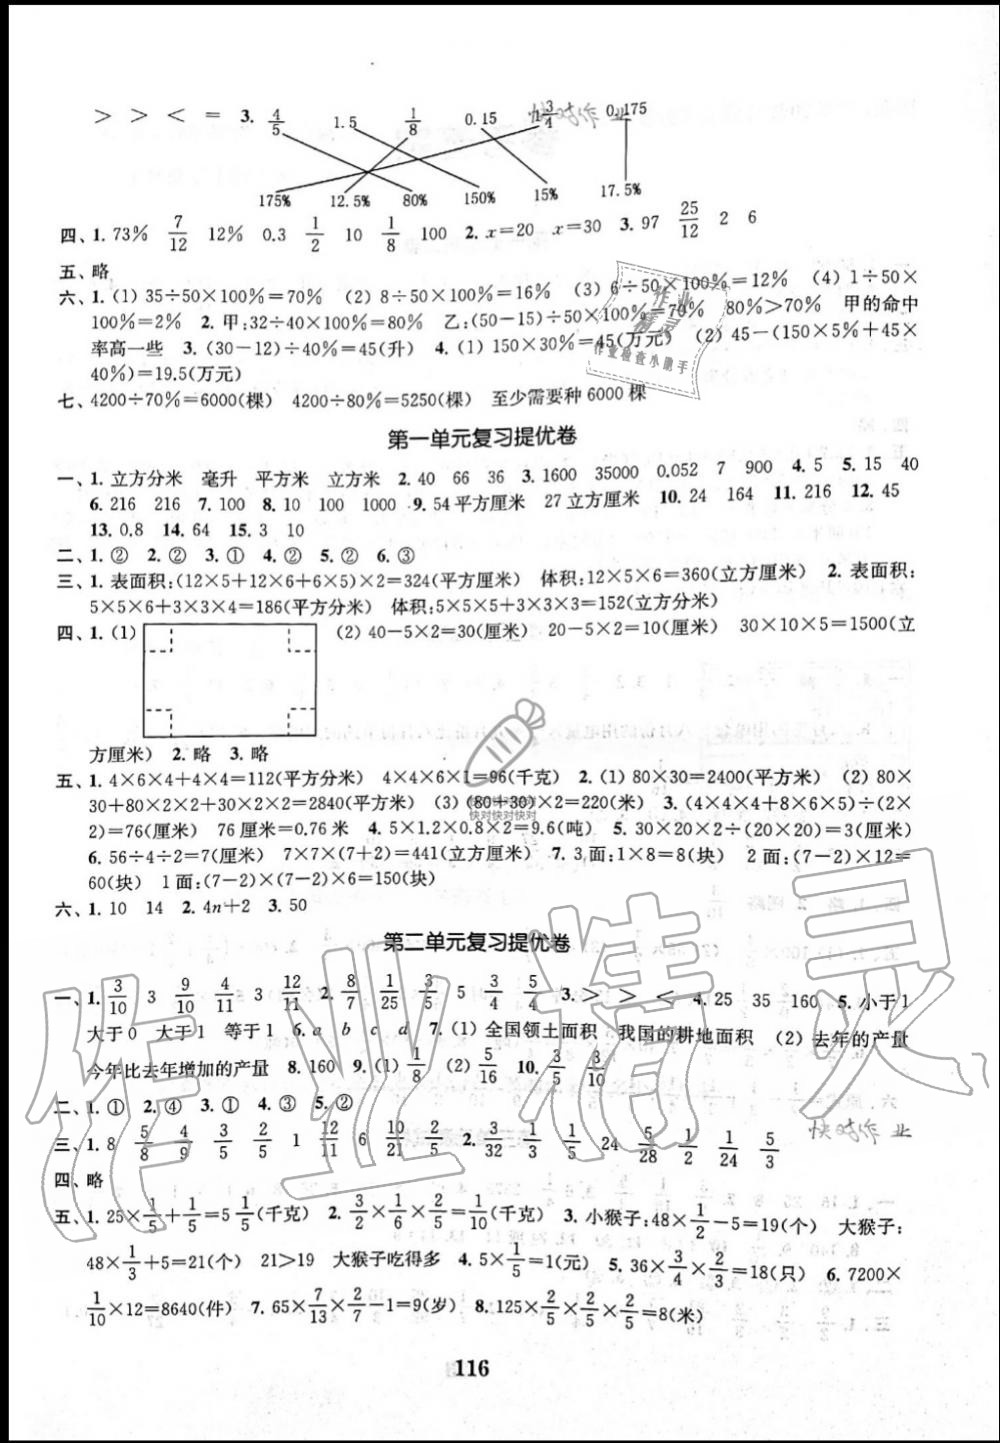 > > < = 3. 4/5 1.5 1/8 0.15 1 3/4 0.175
175% 12.5% 80% 150% 15% 17.5%
四、1. 73% 7/12 12% 0.3 1/2 10 1/8 100 2. x=20 x=30 3. 97 25/12 2 6
五、略
六、1. (1) 35÷50×100%=70% (2) 8÷50×100%=16% (3) 6÷50×100%=12% (4) 1÷50×
100%=2% 2. 甲:32÷40×100%=80% 乙:(50-15)÷50×100%=70% 80%>70% 甲的命中
率高一些 3. (30-12)÷40%=45(升) 4. (1) 150×30%=45(万元) (2) 45-(150×5%+45×
40%)=19.5(万元)
七、4200÷70%=6000(棵) 4200÷80%=5250(棵) 至少需要种 6000 棵
第一单元复习提优卷
一、1. 立方分米 毫升 平方米 立方米 2. 40 66 36 3. 1600 35000 0.052 7 900 4. 5 5. 15 40
6. 216 216 7. 100 8. 10 100 1000 9. 54 平方厘米 27 立方厘米 10. 24 164 11. 216 12. 45
13. 0.8 14. 64 15. 3 10
二、1. ② 2. ② 3. ① 4. ② 5. ② 6. ③
三、1. 表面积:(12×5+12×6+6×5)×2=324(平方厘米) 体积:12×5×6=360(立方厘米) 2. 表面积:
5×5×6+3×3×4=186(平方分米) 体积:5×5×5+3×3×3=152(立方分米)
四、1. (1) (2) 40-5×2=30(厘米) 20-5×2=10(厘米) 30×10×5=1500(立
方厘米) 2. 略 3. 略
五、1. 4×6×4+4×4=112(平方分米) 4×4×6×1=96(千克) 2. (1) 80×30=2400(平方米) (2) 80×
30+80×2×2+30×2×2=2840(平方米) (3) (80+30)×2=220(米) 3. (4×4×4+8×6×5)÷(2×
2)=76(厘米) 76 厘米=0.76 米 4. 5×1.2×0.8×2=9.6(吨) 5. 30×20×2÷(20×20)=3(厘米)
6. 56÷4÷2=7(厘米) 7×7×(7+2)=441(立方厘米) 7. 3 面:1×8=8(块) 2 面:(7-2)×12=
60(块) 1 面:(7-2)×(7-2)×6=150(块)
六、1. 10 14 2. 4n+2 3. 50
第二单元复习提优卷
一、1. 3/10 3 9/10 4/11 3 12/11 2. 8/7 1/25 3/5 5 3/4 5/4 3. > > < 4. 25 35 160 5. 小于 1
大于 0 大于 1 等于 1 6. a b c d 7. (1) 全国领土面积 我国的耕地面积 (2) 去年的产量
今年比去年增加的产量 8. 160 9. (1) 1/8 (2) 5/16 10. 3/5 3/10
二、1. ① 2. ④ 3. ① 4. ③ 5. ②
三、1. 8 5/8 4/9 3/5 2/5 1 12/11 6 10/21 2/5 2. 3/32 1/3 1/5 24 5/28 1/2 1/24 5/3
四、略
五、1. 25×1/5+1/5=5 1/5(千克) 2. 3/2×1/6×2/5=1/10(千克) 3. 小猴子:48×1/2-5=19(个) 大猴子:
48×1/3+5=21(个) 21>19 大猴子吃得多 4. 5×1/5=1(元) 5. 36×3/4×2/3=18(只) 6. 7200×
1/10×12=8640(件) 7. 65×7/13×2/7-1=9(岁) 8. 125×2/5×2/5×2/5=8(米)
116
快对作业
作业
精灵
作业检查小助手
快对快对快对
快对快对快对
作业精灵
快对作业